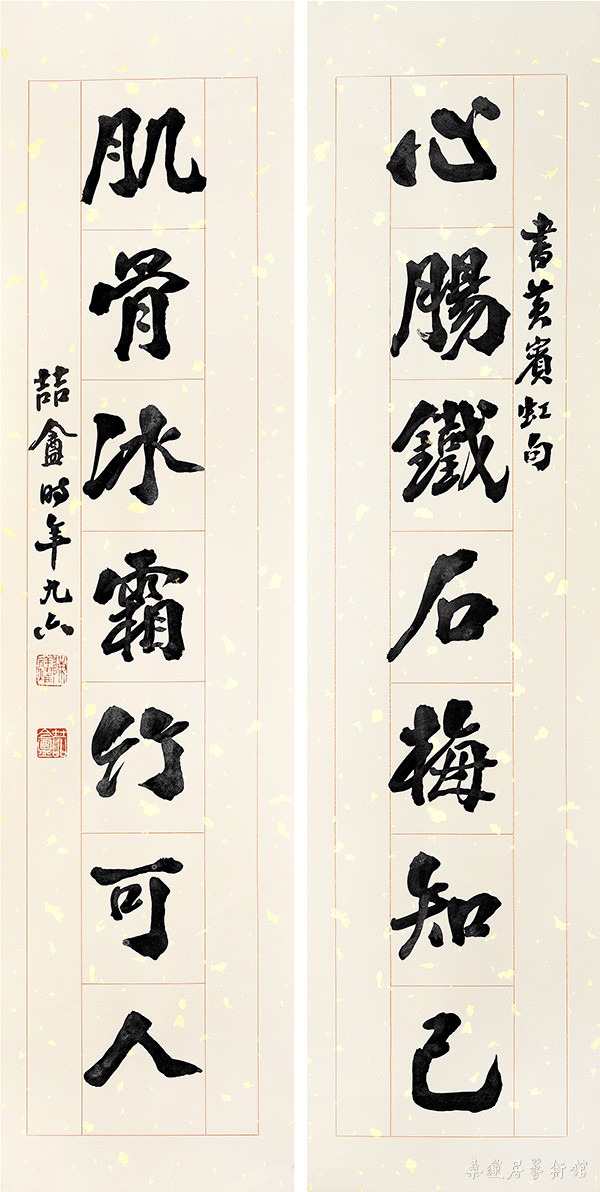 心腸鐵石梅知己
書黃賓虹句
肌骨冰霜竹可人
喆盦時年九六
喆盦